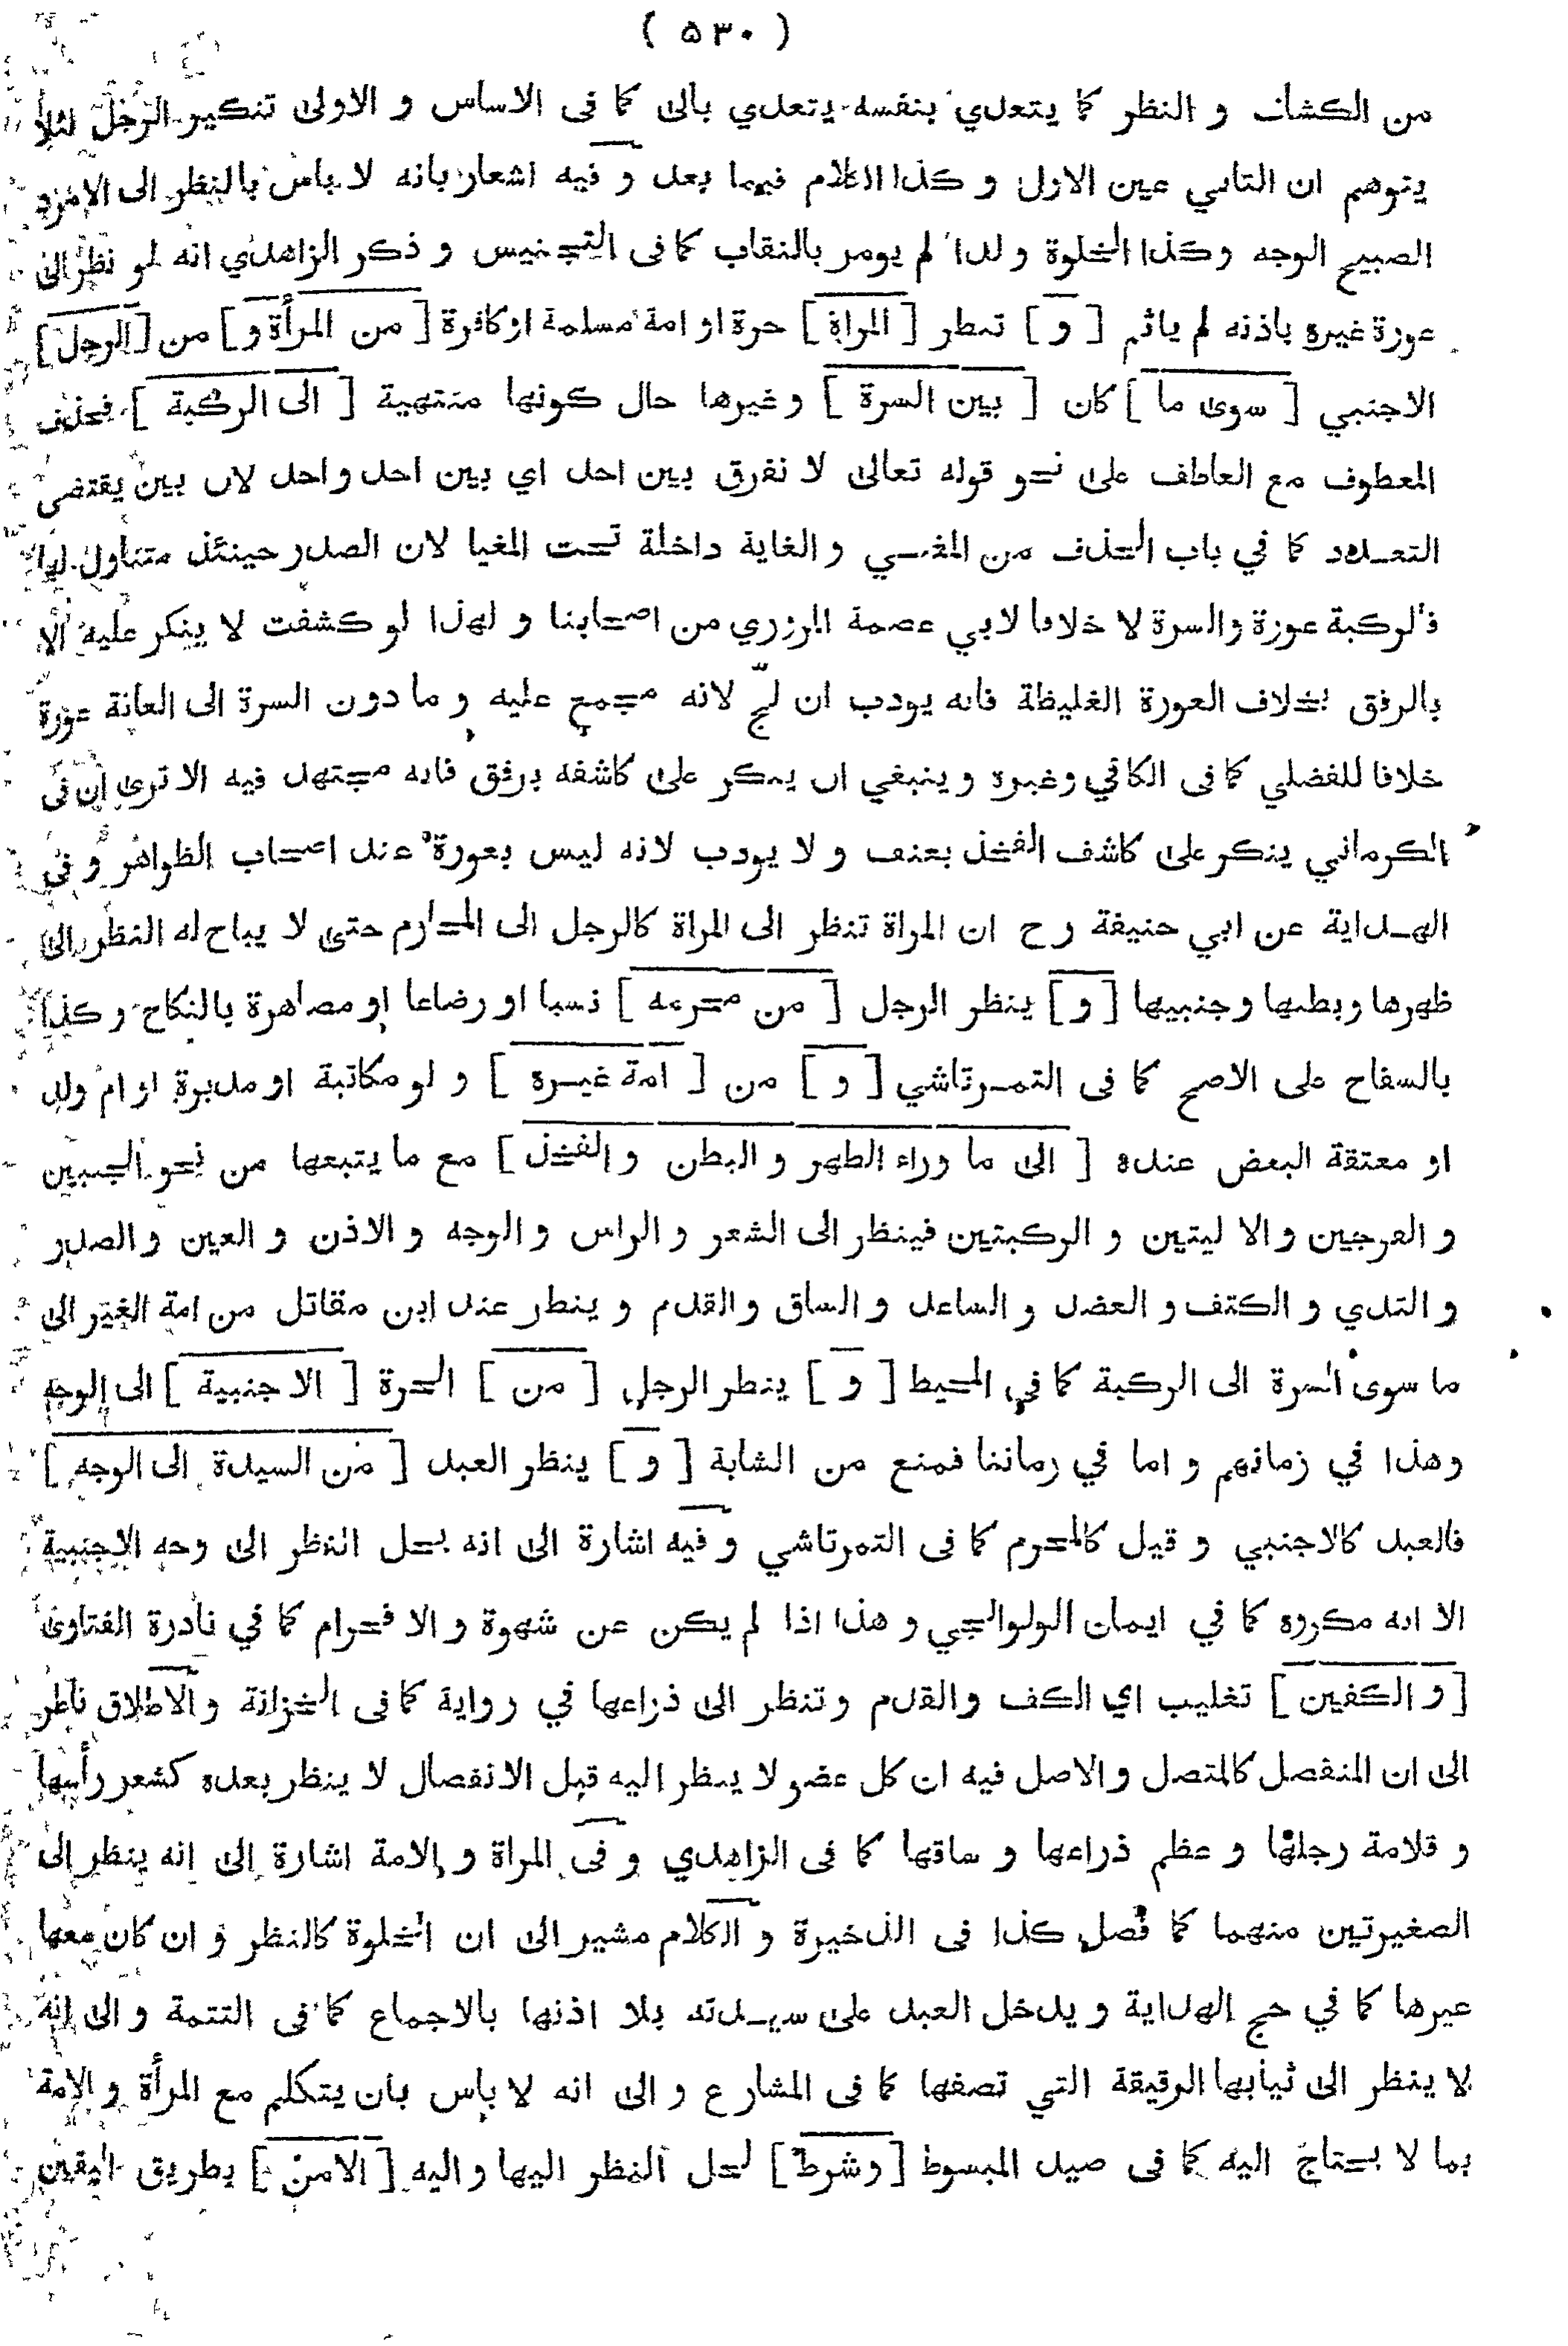 ( ۵۳۰ )
من الكشاف و النظر كما يتعدي بنفسه يتعدي بالى كما فى الاساس و الاولى تنكير الرجل لئلا
يتوهم ان الثاني عين الاول و كذا الكلام فيما بعد و فيه اشعار بانه لا باس بالنظر الى الامرد
الصبيح الوجه وكذا الخلوة و لذا لم يومر بالنقاب كما فى التجنيس و ذكر الزاهدي انه لو نظر الى
عورة غيره باذنه لم ياثم [ و ] تنظر [ المراة ] حرة او امة مسلمة او كافرة [ من المرأة و ] من [ الرجل ]
الاجنبي [ سوى ما ] كان [ بين السرة ] و غيرها حال كونها منتهية [ الى الركبة ] فحذف
المعطوف مع العاطف على نحو قوله تعالى لا نفرق بين احد اي بين احد و احد لان بين يقتضى
التعدد كما في باب الحذف من المغني و الغاية داخلة تحت المغيا لان الصدر حينئذ متناول لها
فالركبة عورة والسرة لا خلافا لابي عصمة المروزي من اصحابنا و لهذا لو كشفت لا ينكر عليه الا
بالرفق بخلاف العورة الغليظة فانه يودب ان لجّ لانه مجمع عليه و ما دون السرة الى العانة عورة
خلافا للفضلي كما فى الكافي وغيره و ينبغي ان ينكر على كاشفه برفق فانه مجتهد فيه الا ترى ان فى
الكرماني ينكر على كاشف الفخذ بعنف و لا يودب لانه ليس بعورة عند اصحاب الظواهر و فى
الهداية عن ابي حنيفة رح ان المراة تنظر الى المراة كالرجل الى المحارم حتى لا يباح له النظر الى
ظهرها وبطنها وجنبيها [ و ] ينظر الرجل [ من محرمه ] نسبا او رضاعا او مصاهرة بالنكاح و كذا
بالسفاح على الاصح كما فى التمرتاشي [ و ] من [ امة غيره ] و لو مكاتبة او مدبرة او ام ولد
او معتقة البعض عنده [ الى ما وراء الظهر و البطن و الفخذ ] مع ما يتبعها من نحو الجنبين
و الفرجين و الا ليتين و الركبتين فينظر الى الشعر و الراس و الوجه و الاذن و العين و الصدر
و الثدي و الكتف و العضد و الساعد و الساق و القدم و ينظر عند ابن مقاتل من امة الغير الى
ما سوى السرة الى الركبة كما في المحيط [ و ] ينظر الرجل [ من ] الحرة [ الا جنبية ] الى الوجه
وهذا في زمانهم و اما في زماننا فمنع من الشابة [ و ] ينظر العبد [ من السيدة الى الوجه ]
فالعبد كالاجنبي و قيل كالمحرم كما فى التمرتاشي و فيه اشارة الى انه يحل النظر الى وجه الاجنبية
الا انه مكروه كما في ايمان الولوالجي و هذا اذا لم يكن عن شهوة و الا فحرام كما في نادرة الفتاوى
[ و الكفين ] تغليب اي الكف والقدم و تنظر الى ذراعها في رواية كما فى الخزانة و الاطلاق ناظر
الى ان المنفصل كالمتصل و الاصل فيه ان كل عضو لا ينظر اليه قبل الانفصال لا ينظر بعده كشعر رأسها
و قلامة رجلها و عظم ذراعها و ساقها كما فى الزاهدي و فى المراة و الامة اشارة الى انه ينظر الى
الصغيرتين منهما كما فصل كذا فى الذخيرة و الكلام مشير الى ان الخلوة كالنظر و ان كان معها
غيرها كما في حج الهداية و يدخل العبد على سيدته بلا اذنها بالاجماع كما فى التتمة و الى انه
لا ينظر الى ثيابها الرقيقة التي تصفها كما فى المشارع و الى انه لا باس بان يتكلم مع المرأة و الامة
بما لا يحتاج اليه كما فى صيد المبسوط [ وشرط ] لحل النظر اليها و اليه [ الامن ] بطريق اليقين